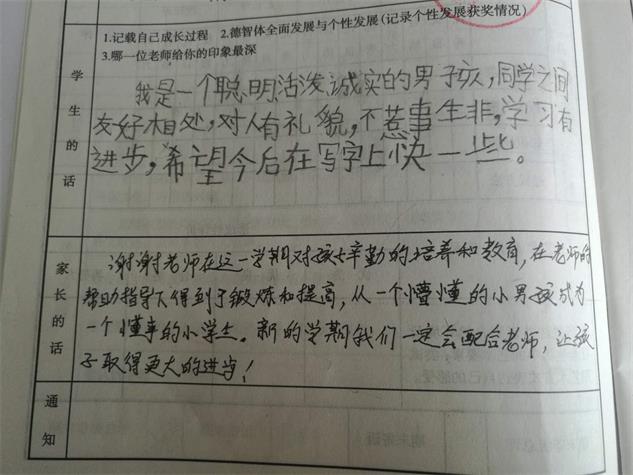 1.记载自己成长过程 2.德智体全面发展与个性发展(记录个性发展获奖情况)
3.哪一位老师给你的印象最深
学生的话
我是一个聪明活泼诚实的男子孩,同学之间
友好相处,对人有礼貌,不惹事生非,学习有
进步,希望今后在写字上快一些。
家长的话
谢谢老师在这一学期对孩子辛勤的培养和教育,在老师的
帮助指导下得到了锻炼和提高,从一个懵懂的小男孩成为
一个懂事的小学生。新的学期我们一定会配合老师,让孩
子取得更大的进步!
通知